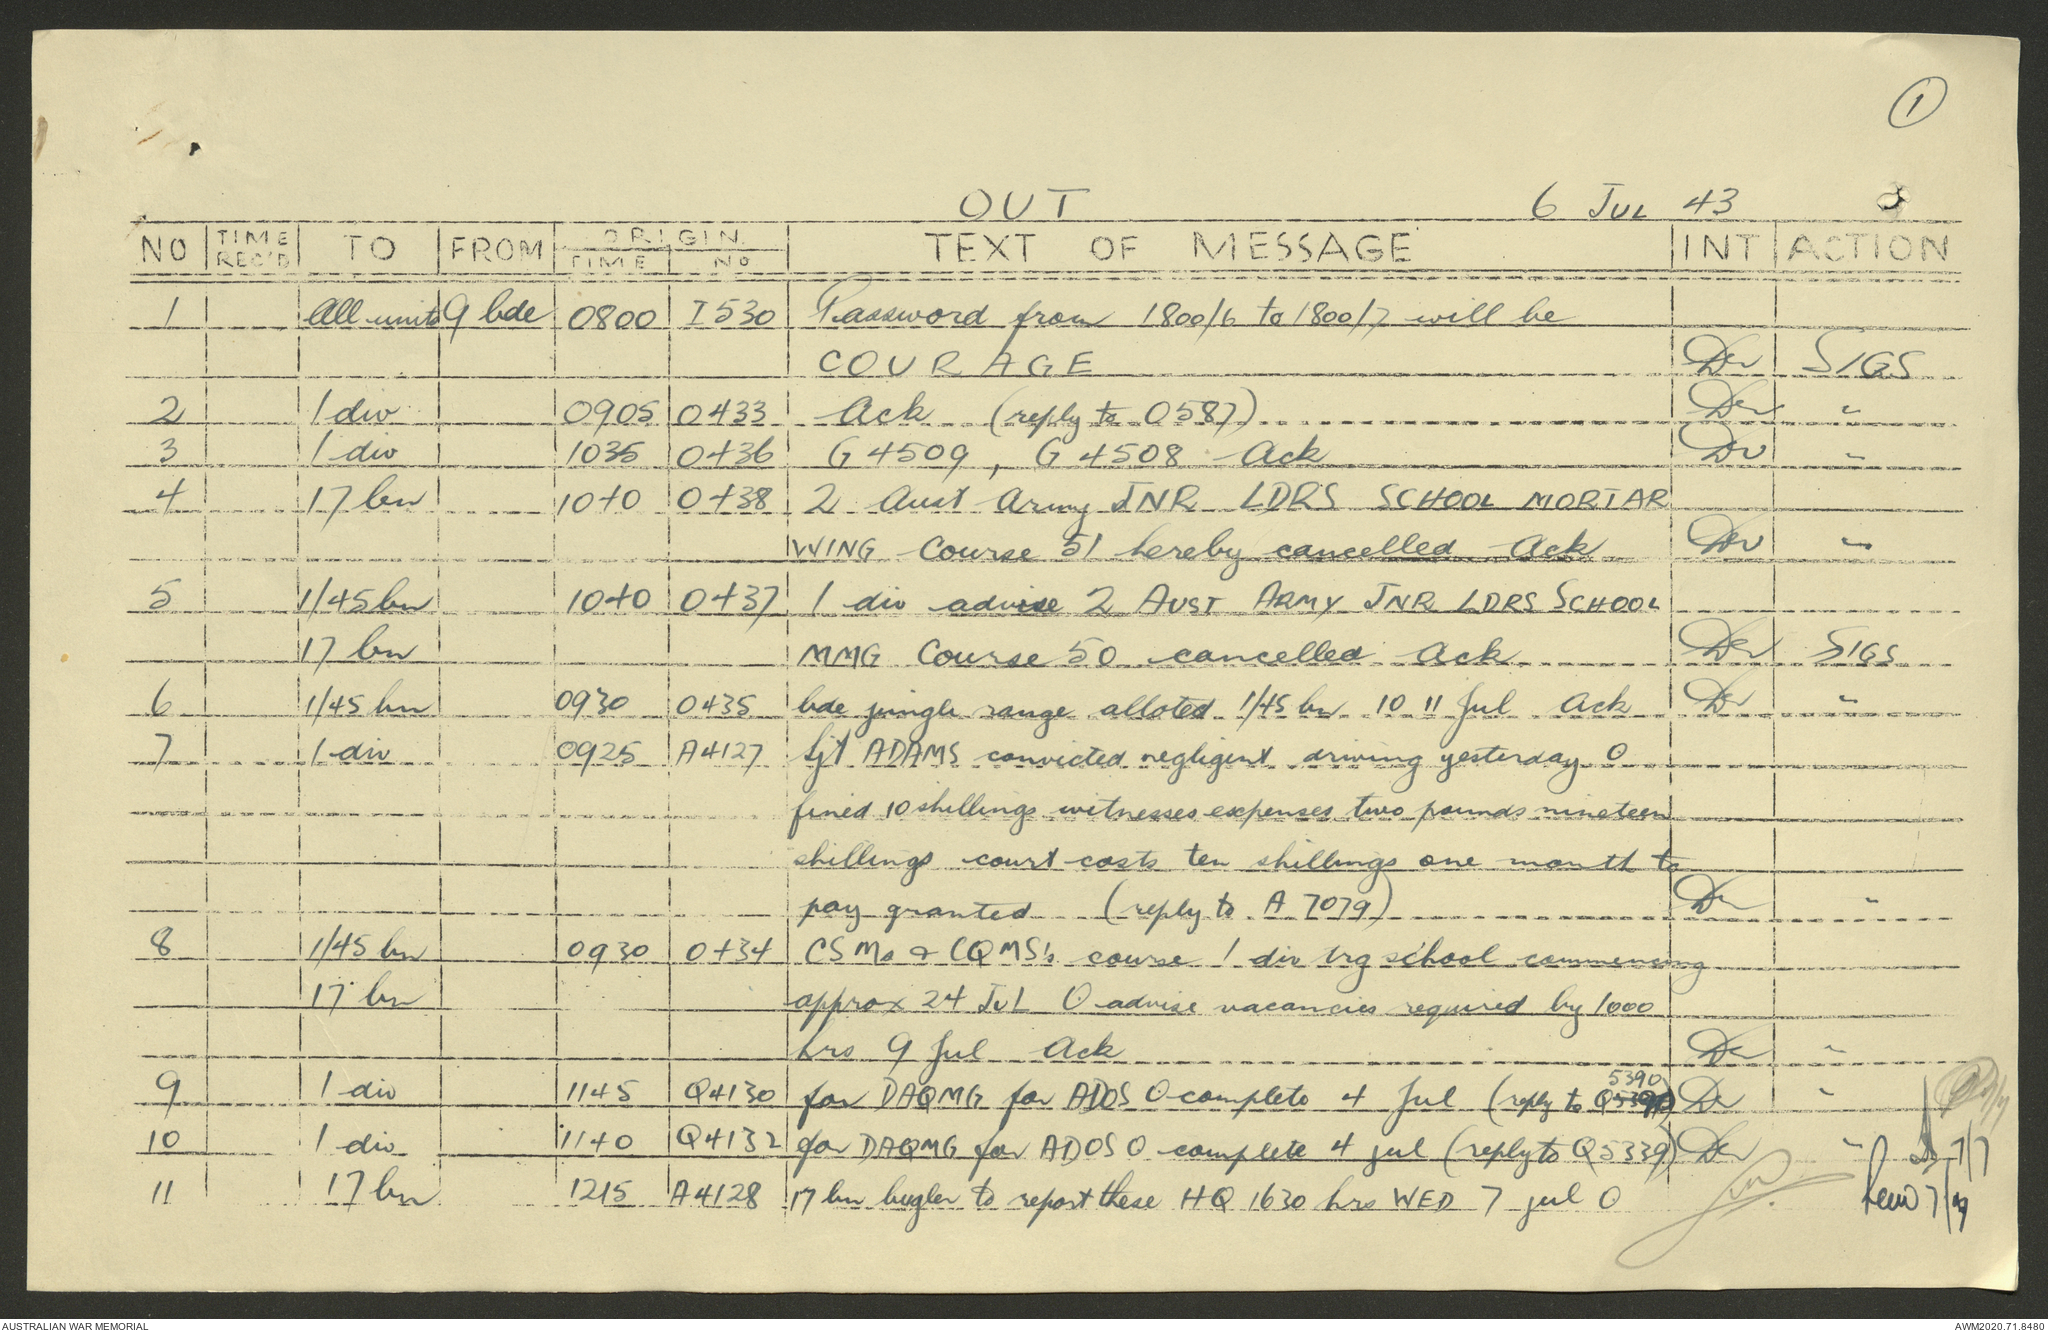 1
OUT 6 JUL 43
NO TIME REC'D TO FROM ORIGIN TIME NO TEXT OF MESSAGE INT ACTION
1 All units 9 bde 0800 I530 Password from 1800/6 to 1800/7 will be
COURAGE SIGS
2 1 div 0905 O433 Ack (reply to O587) "
3 1 div 1035 O436 G4509, G4508 Ack "
4 17 bn 1040 O438 2 Aust Army JNR LDRS SCHOOL MORTAR
WING Course 51 hereby cancelled Ack "
5 1/45 bn 1040 O437 1 div advise 2 AUST ARMY JNR LDRS SCHOOL
17 bn MMG Course 50 cancelled Ack SIGS
6 1/45 bn 0930 O435 bde jungle range alloted 1/45 bn 10 11 Jul Ack "
7 1 div 0925 A4127 Sjt ADAMS convicted negligent driving yesterday O
fined 10 shillings witnesses expenses two pounds nineteen
shillings court costs ten shillings one month to
pay granted (reply to A7079) "
8 1/45 bn 0930 O434 CSMs & CQMS's course 1 div trg school commencing
17 bn approx 24 JUL O advise vacancies required by 1000
hrs 9 Jul Ack "
9 1 div 1145 Q4130 for DAQMG for ADOS O complete 4 Jul (reply to Q5390) "
10 1 div 1140 Q4132 for DAQMG for ADOS O complete 4 jul (reply to Q5339) " 7/7
11 17 bn 1215 A4128 17 bn bugler to report these HQ 1630 hrs WED 7 jul O
AUSTRALIAN WAR MEMORIAL AWM2020.71.8480